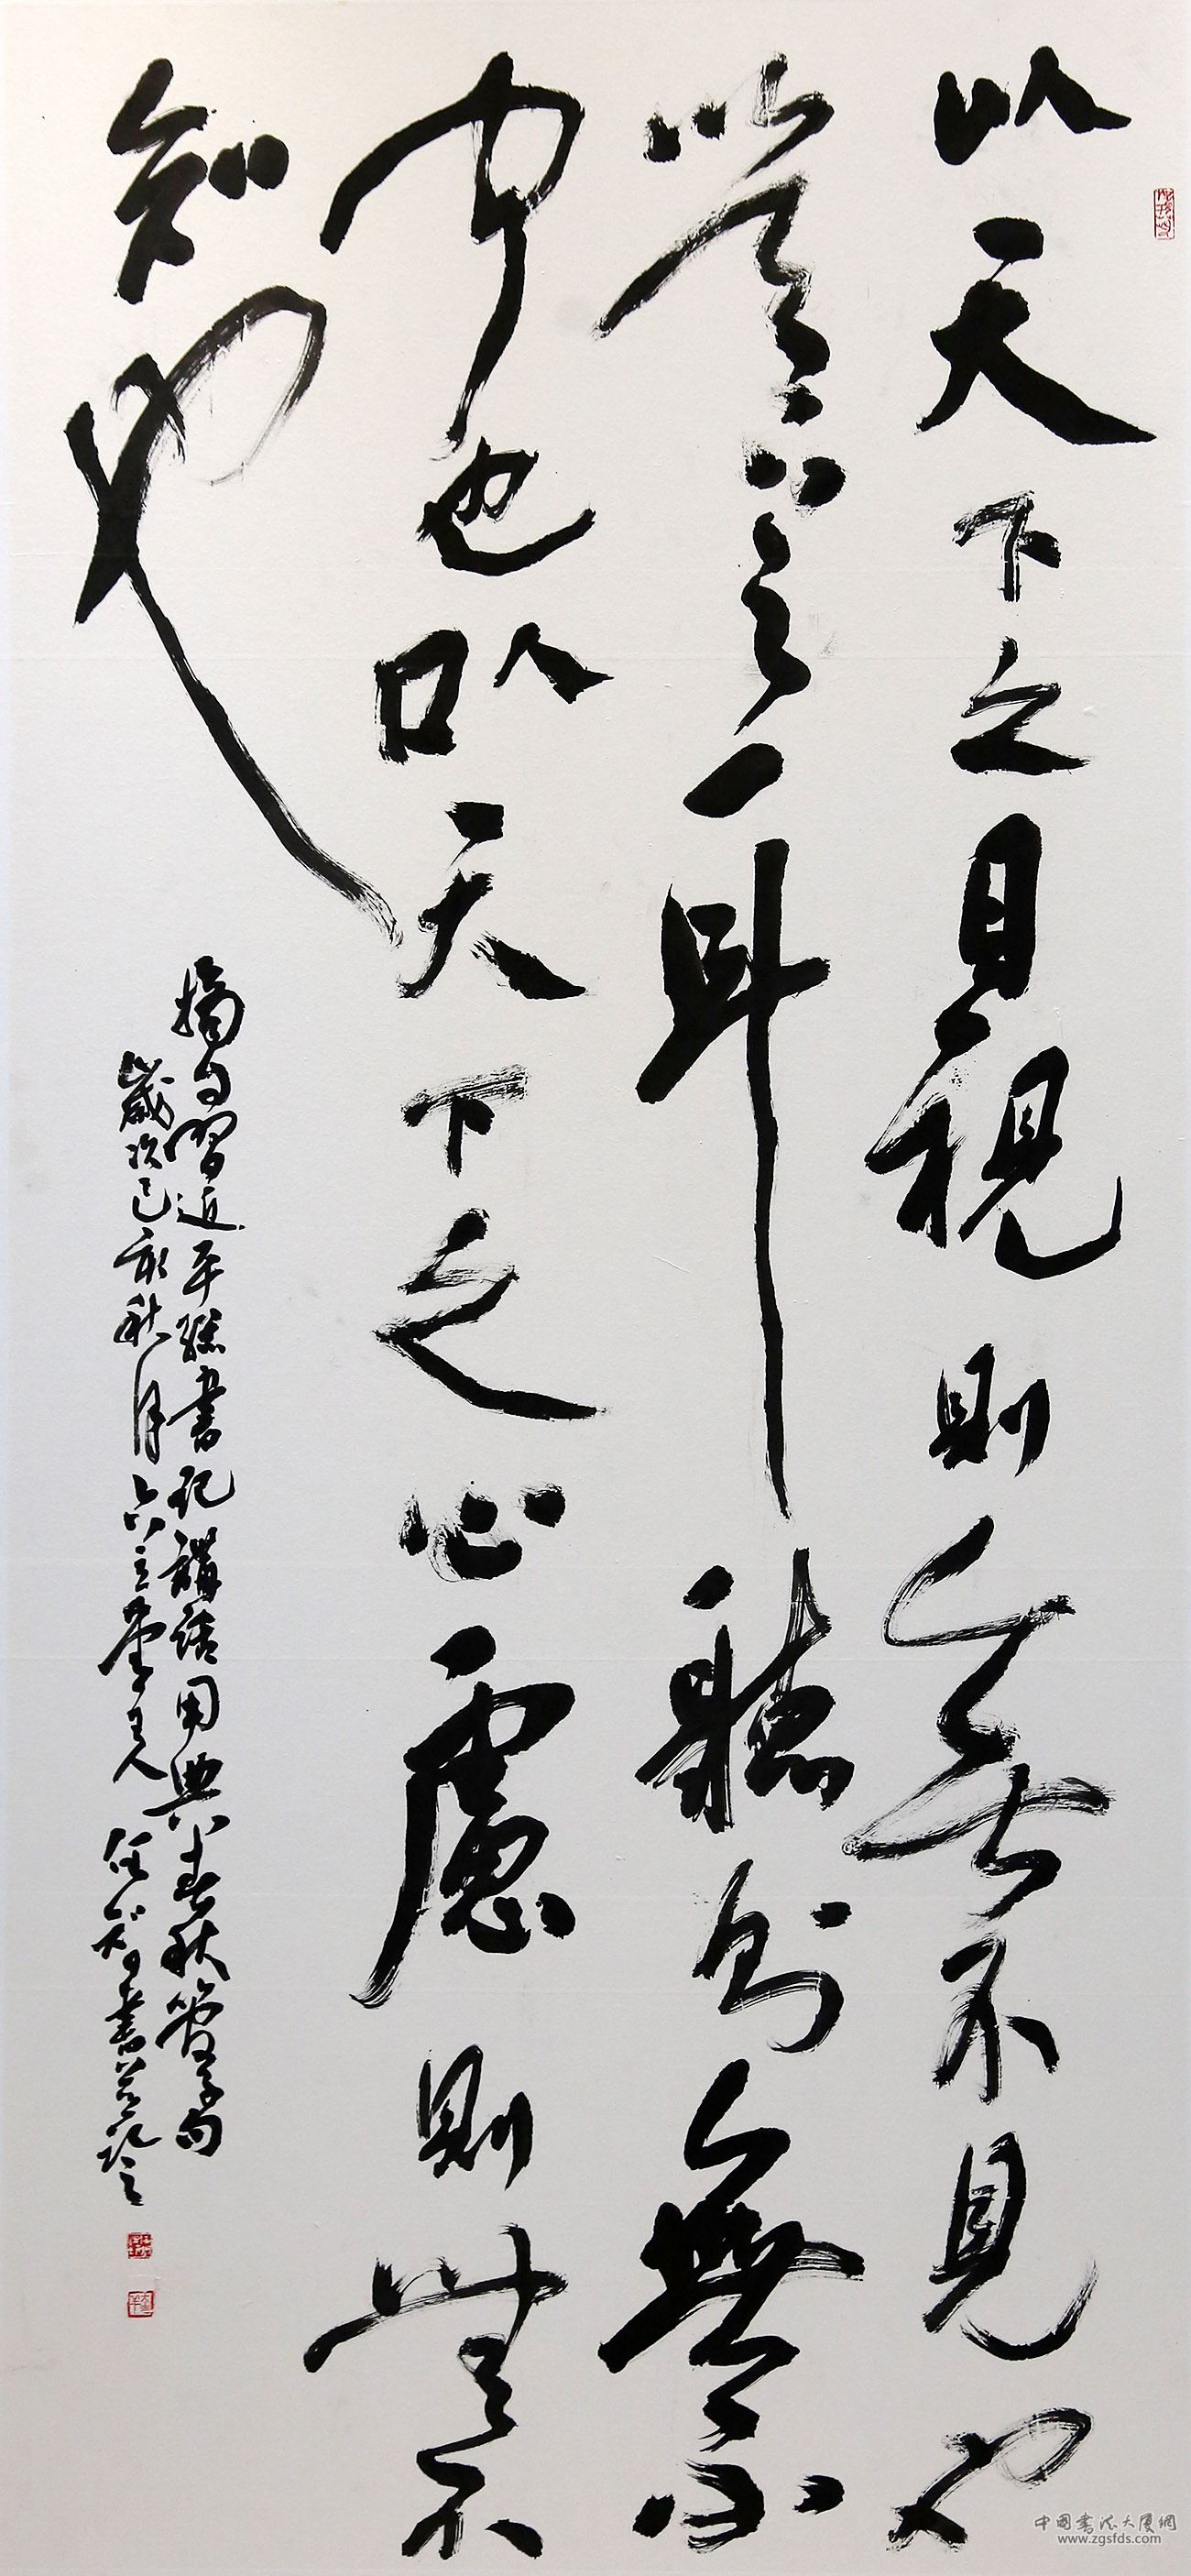 以天下之目視則無不見也
以天下之耳聽則無不
聞也以天下之心慮則無不
知也
摘自習近平總書記講話用典春秋管子句
歲次己亥秋月六立堂主人任書
中國書法大廈網
www.zgsfds.com